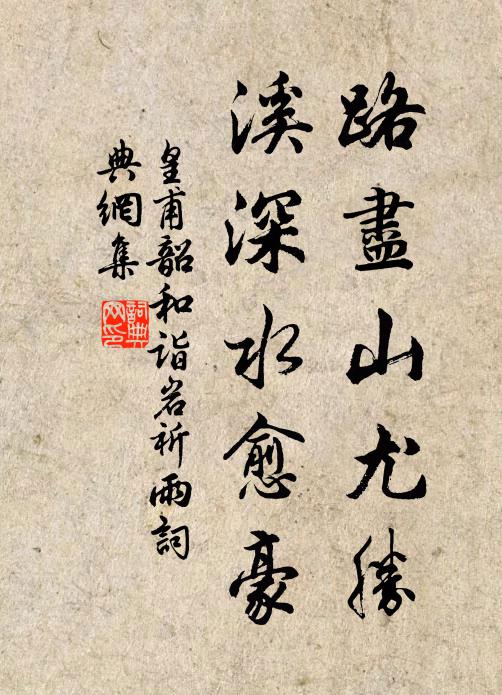 路盡山尤勝
溪深水愈豪
皇甫韶和詣岩祈雨詞
典網集
詞典
网印